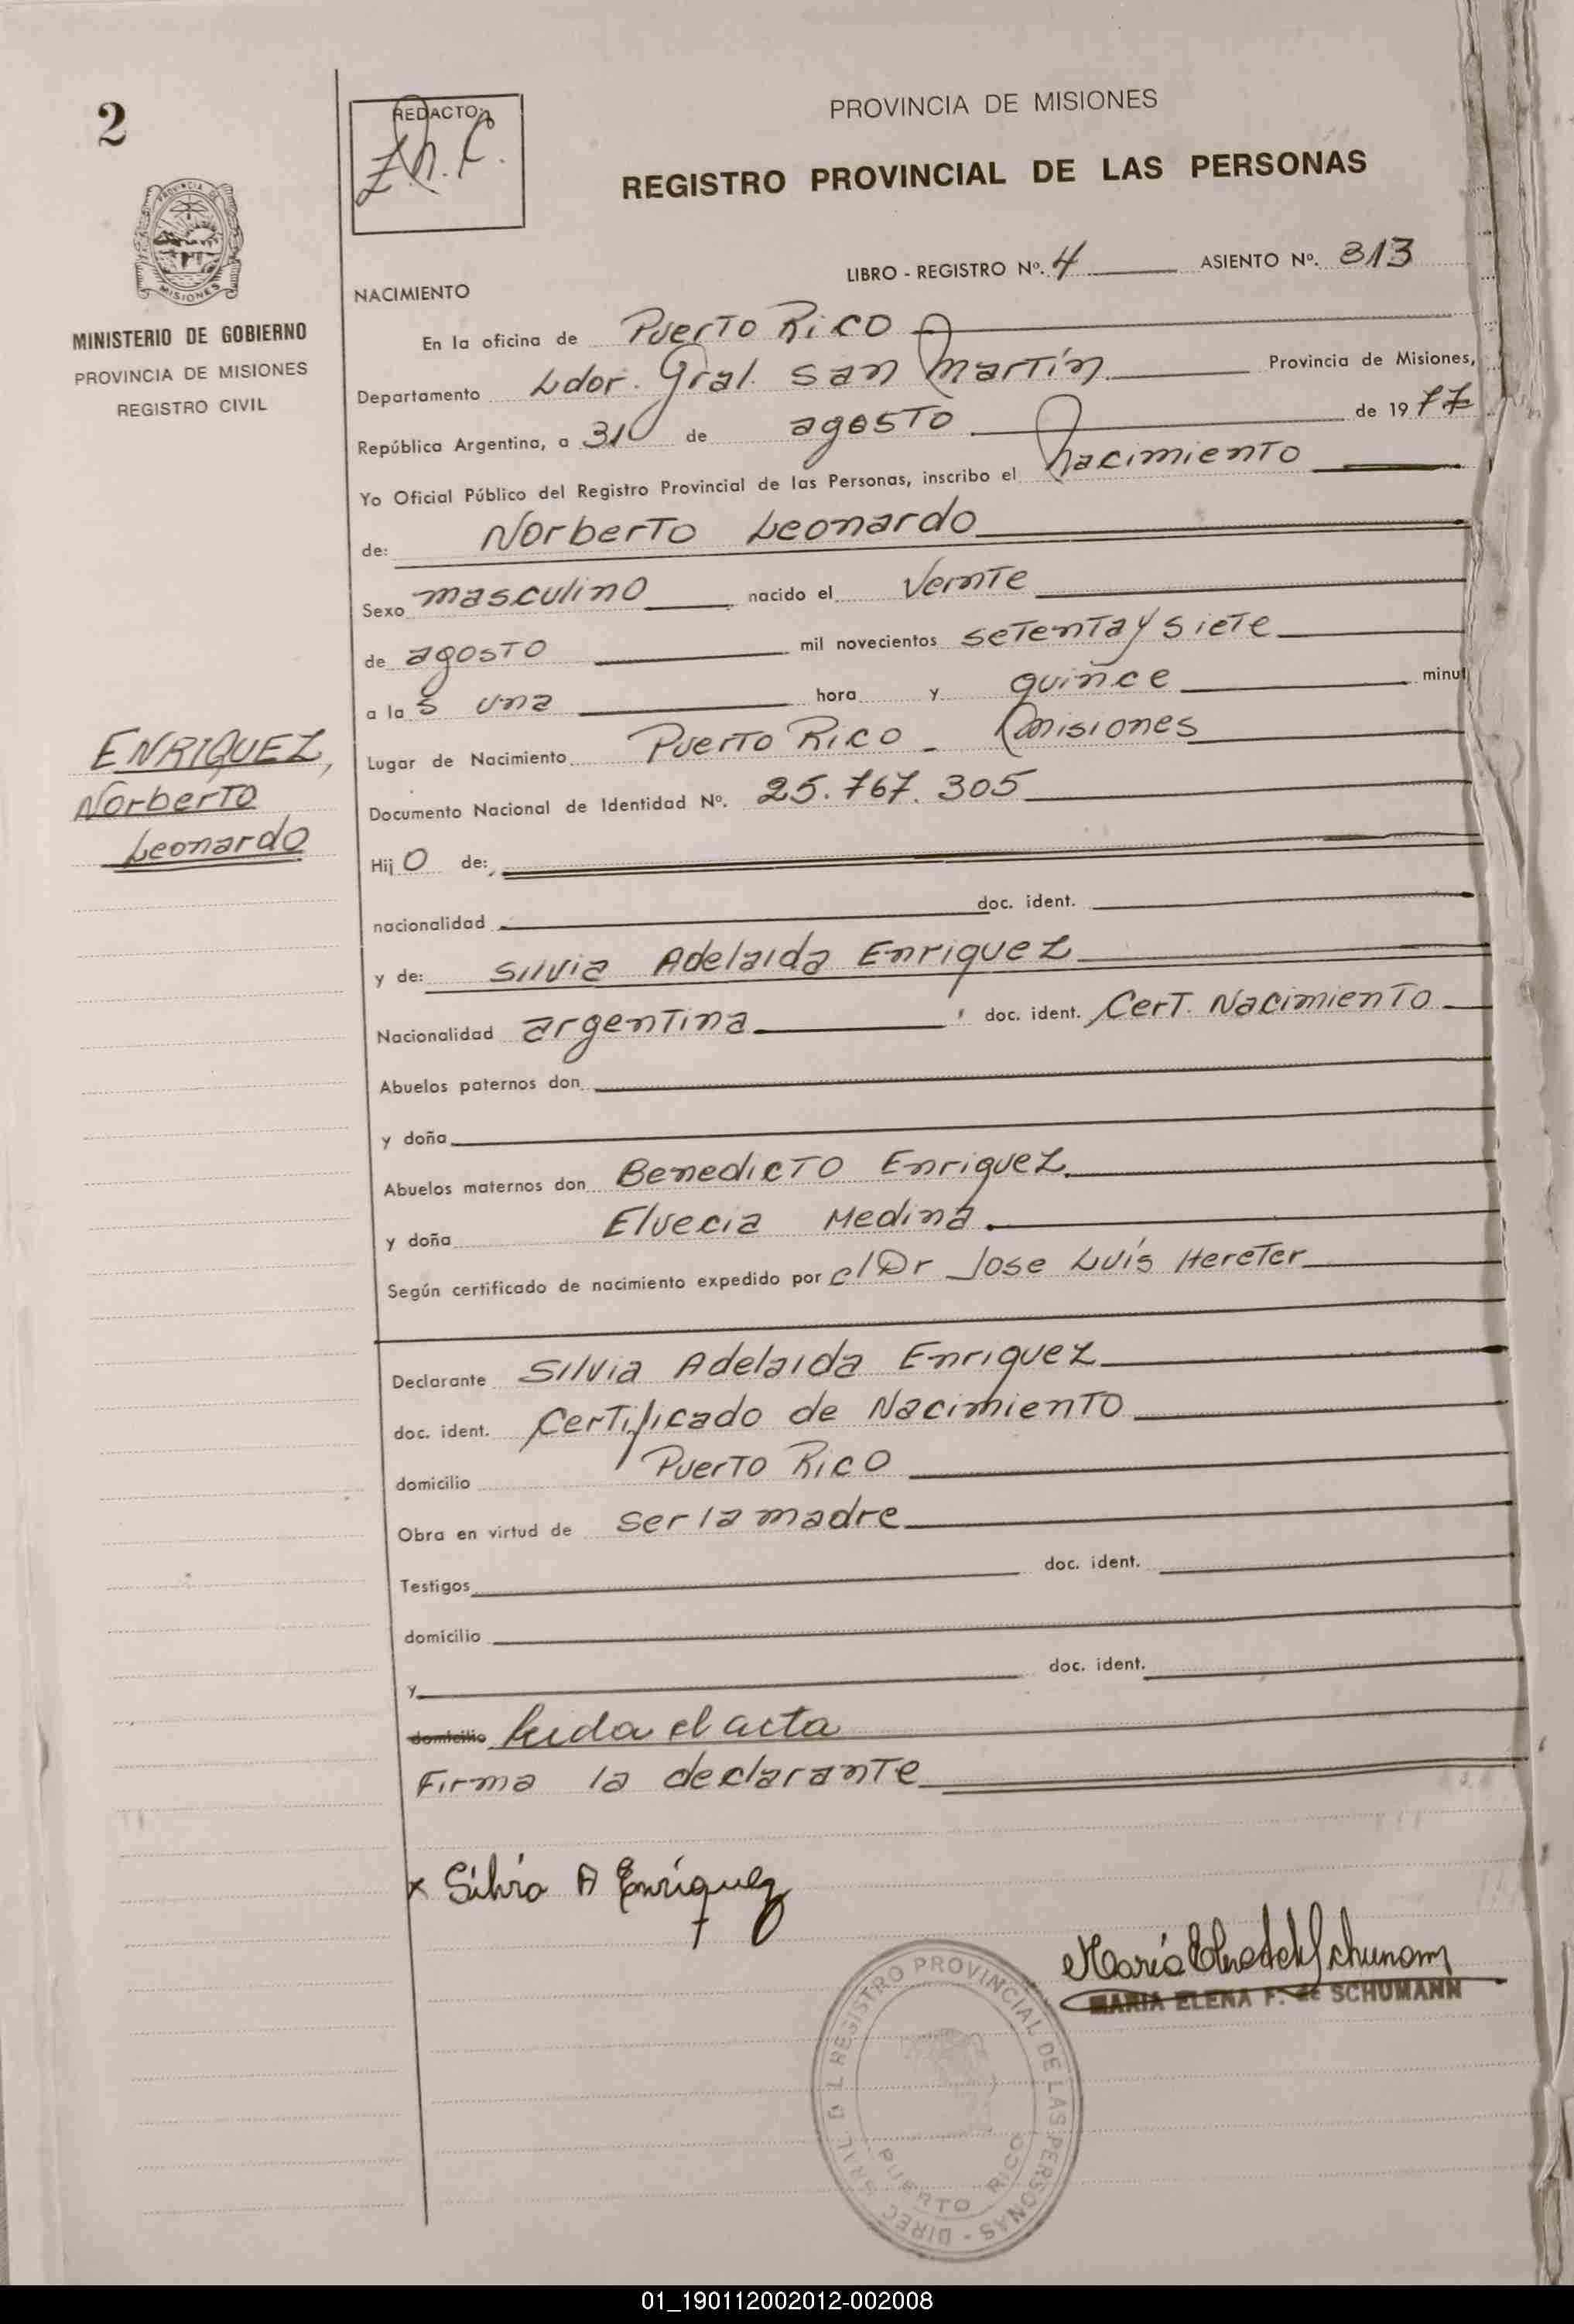 2
REDACTO:
PROVINCIA DE MISIONES
REGISTRO PROVINCIAL DE LAS PERSONAS
PROVINCIA DE
MISIONES
MINISTERIO DE GOBIERNO
PROVINCIA DE MISIONES
REGISTRO CIVIL
LIBRO - REGISTRO Nº. 4 ASIENTO Nº. 313
NACIMIENTO
En la oficina de Puerto Rico
Departamento Ldor. Gral. San Martín Provincia de Misiones,
República Argentina, a 31 de agosto de 1977
Yo Oficial Público del Registro Provincial de las Personas, inscribo el nacimiento
de: Norberto Leonardo
Sexo masculino nacido el veinte
de agosto mil novecientos setenta y siete
a las una hora y quince minut
Lugar de Nacimiento Puerto Rico - Misiones
ENRIQUEZ,
Norberto
Leonardo
Documento Nacional de Identidad Nº. 25.767.305
Hijo de:
nacionalidad doc. ident.
y de: Silvia Adelaida Enriquez
Nacionalidad argentina doc. ident. Cert. Nacimiento
Abuelos paternos don
y doña
Abuelos maternos don Benedicto Enriquez
y doña Elvecia Medina
Según certificado de nacimiento expedido por el Dr Jose Luís Hereter
Declarante Silvia Adelaida Enriquez
doc. ident. Certificado de Nacimiento
domicilio Puerto Rico
Obra en virtud de ser la madre
Testigos doc. ident.
domicilio
y doc. ident.
domicilio Leida el acta
Firma la declarante
x Silvia A Enriquez
MARIA ELENA F. de SCHUMANN
DIREC GRAL D L REGISTRO PROVINCIAL DE LAS PERSONAS -
PUERTO RICO
01_190112002012-002008